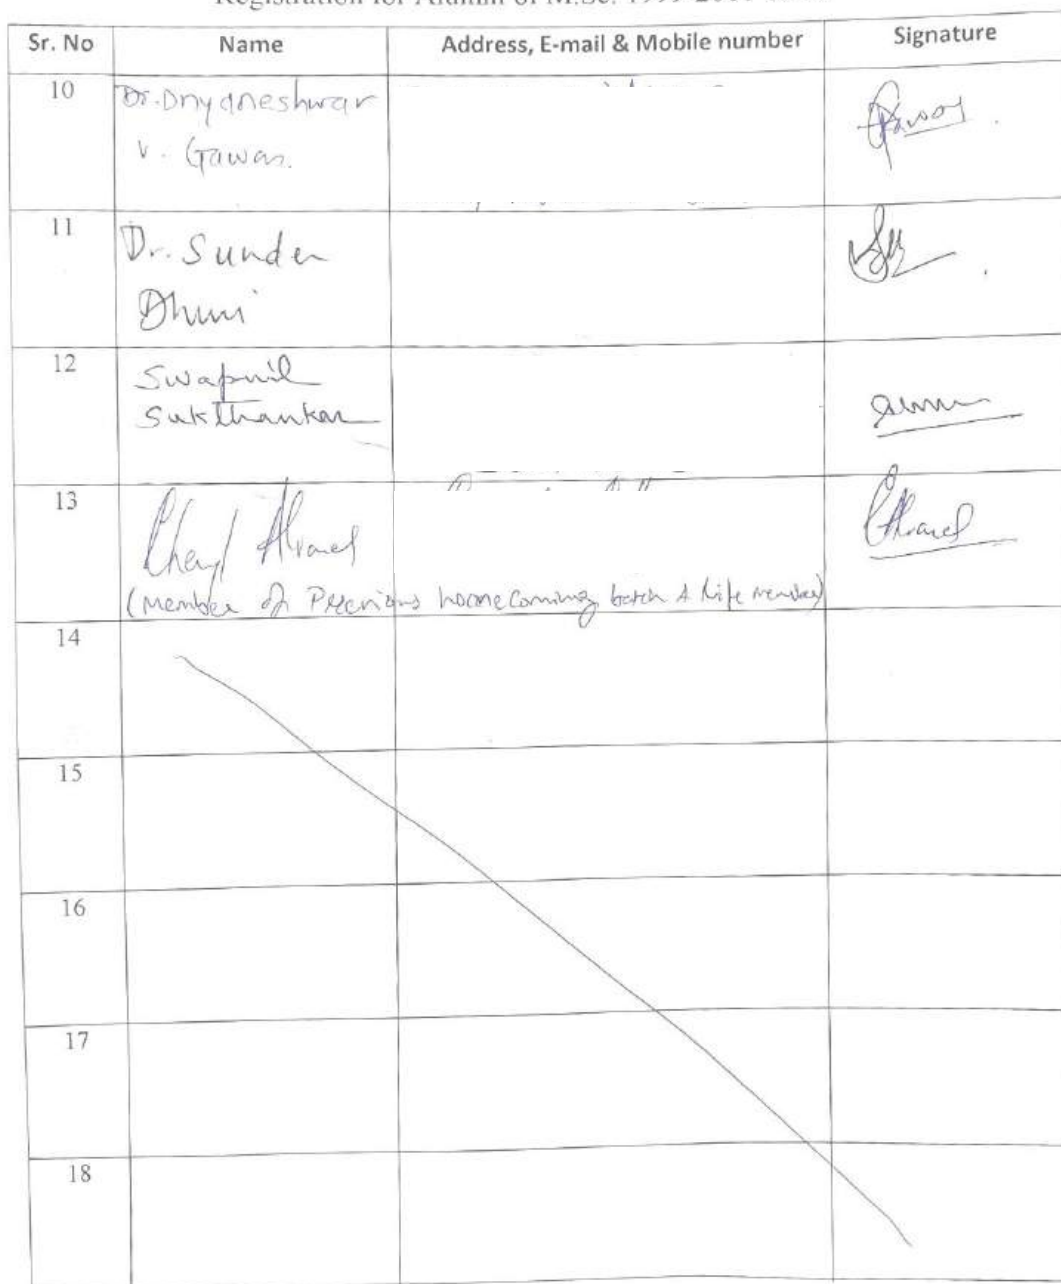 Registration for Alumni of M.Sc. 1999-2000
Sr. No Name Address, E-mail & Mobile number Signature
10 Dr. Dnyaneshwar
V. Gawas.
11 Dr. Sunder
Dhuri
12 Swapnil
Sukthankar
13 Cheryl
(Member of Previous homecoming batch & life member)
14
15
16
17
18